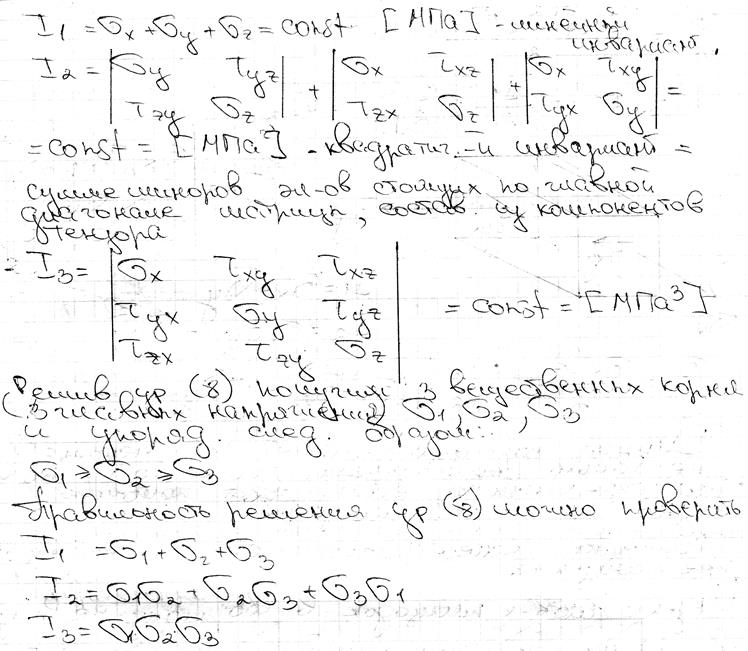 I₁ = σx + σy + σz = const [МПа] - линейный
инвариант.
I₂ = |σy τyz; τzy σz| + |σx τxz; τzx σz| + |σx τxy; τyx σy| =
= const = [МПа²] - квадратич.-й инвариант =
сумме миноров эл-ов стоящих по главной
диагонале матрицы, состав. из компонентов
тензора
I₃ = |σx τxy τxz; τyx σy τyz; τzx τzy σz| = const = [МПа³]
Решив ур (8) получим 3 вещественных корня
(3 главных напряжения) σ₁, σ₂, σ₃
и упоряд. след. образом:
σ₁ ≥ σ₂ ≥ σ₃
Правильность решения ур (8) можно проверить
I₁ = σ₁ + σ₂ + σ₃
I₂ = σ₁σ₂ + σ₂σ₃ + σ₃σ₁
I₃ = σ₁σ₂σ₃